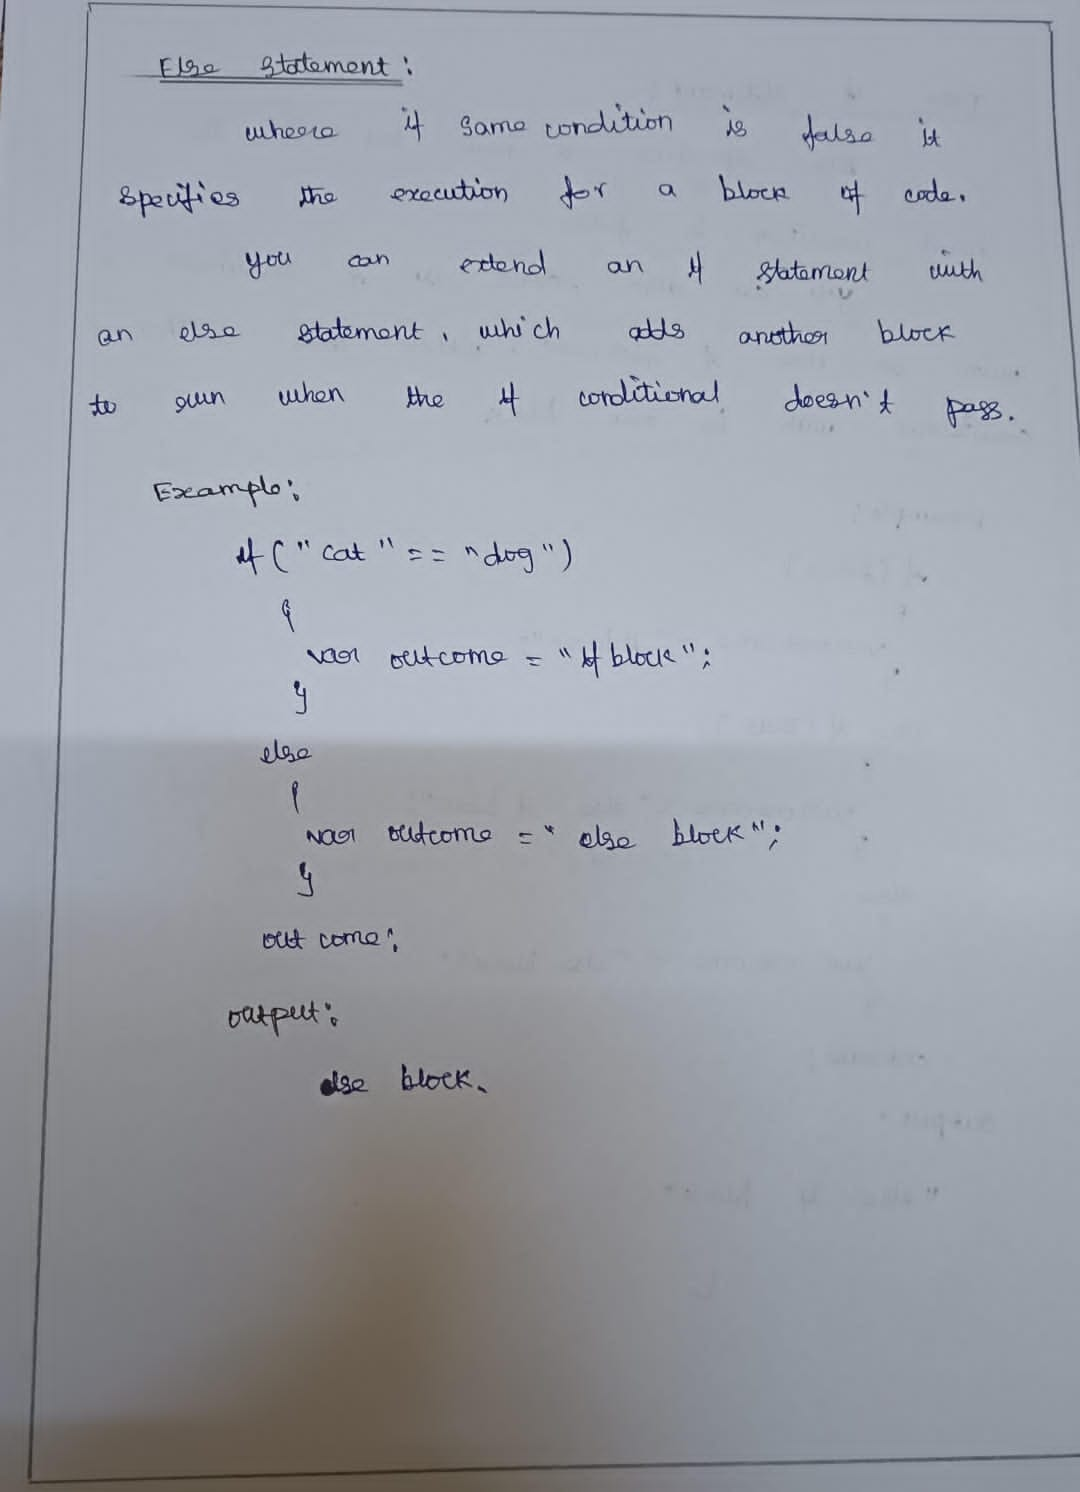 Else statement:
where if same condition is false it
specifies the execution for a block of code.
you can extend an if statement with
an else statement, which adds another block
to run when the if conditional doesn't pass.
Example:
if ("cat" == "dog")
{
var outcome = "if block";
}
else
{
var outcome = "else block";
}
out come;
output:
else block.